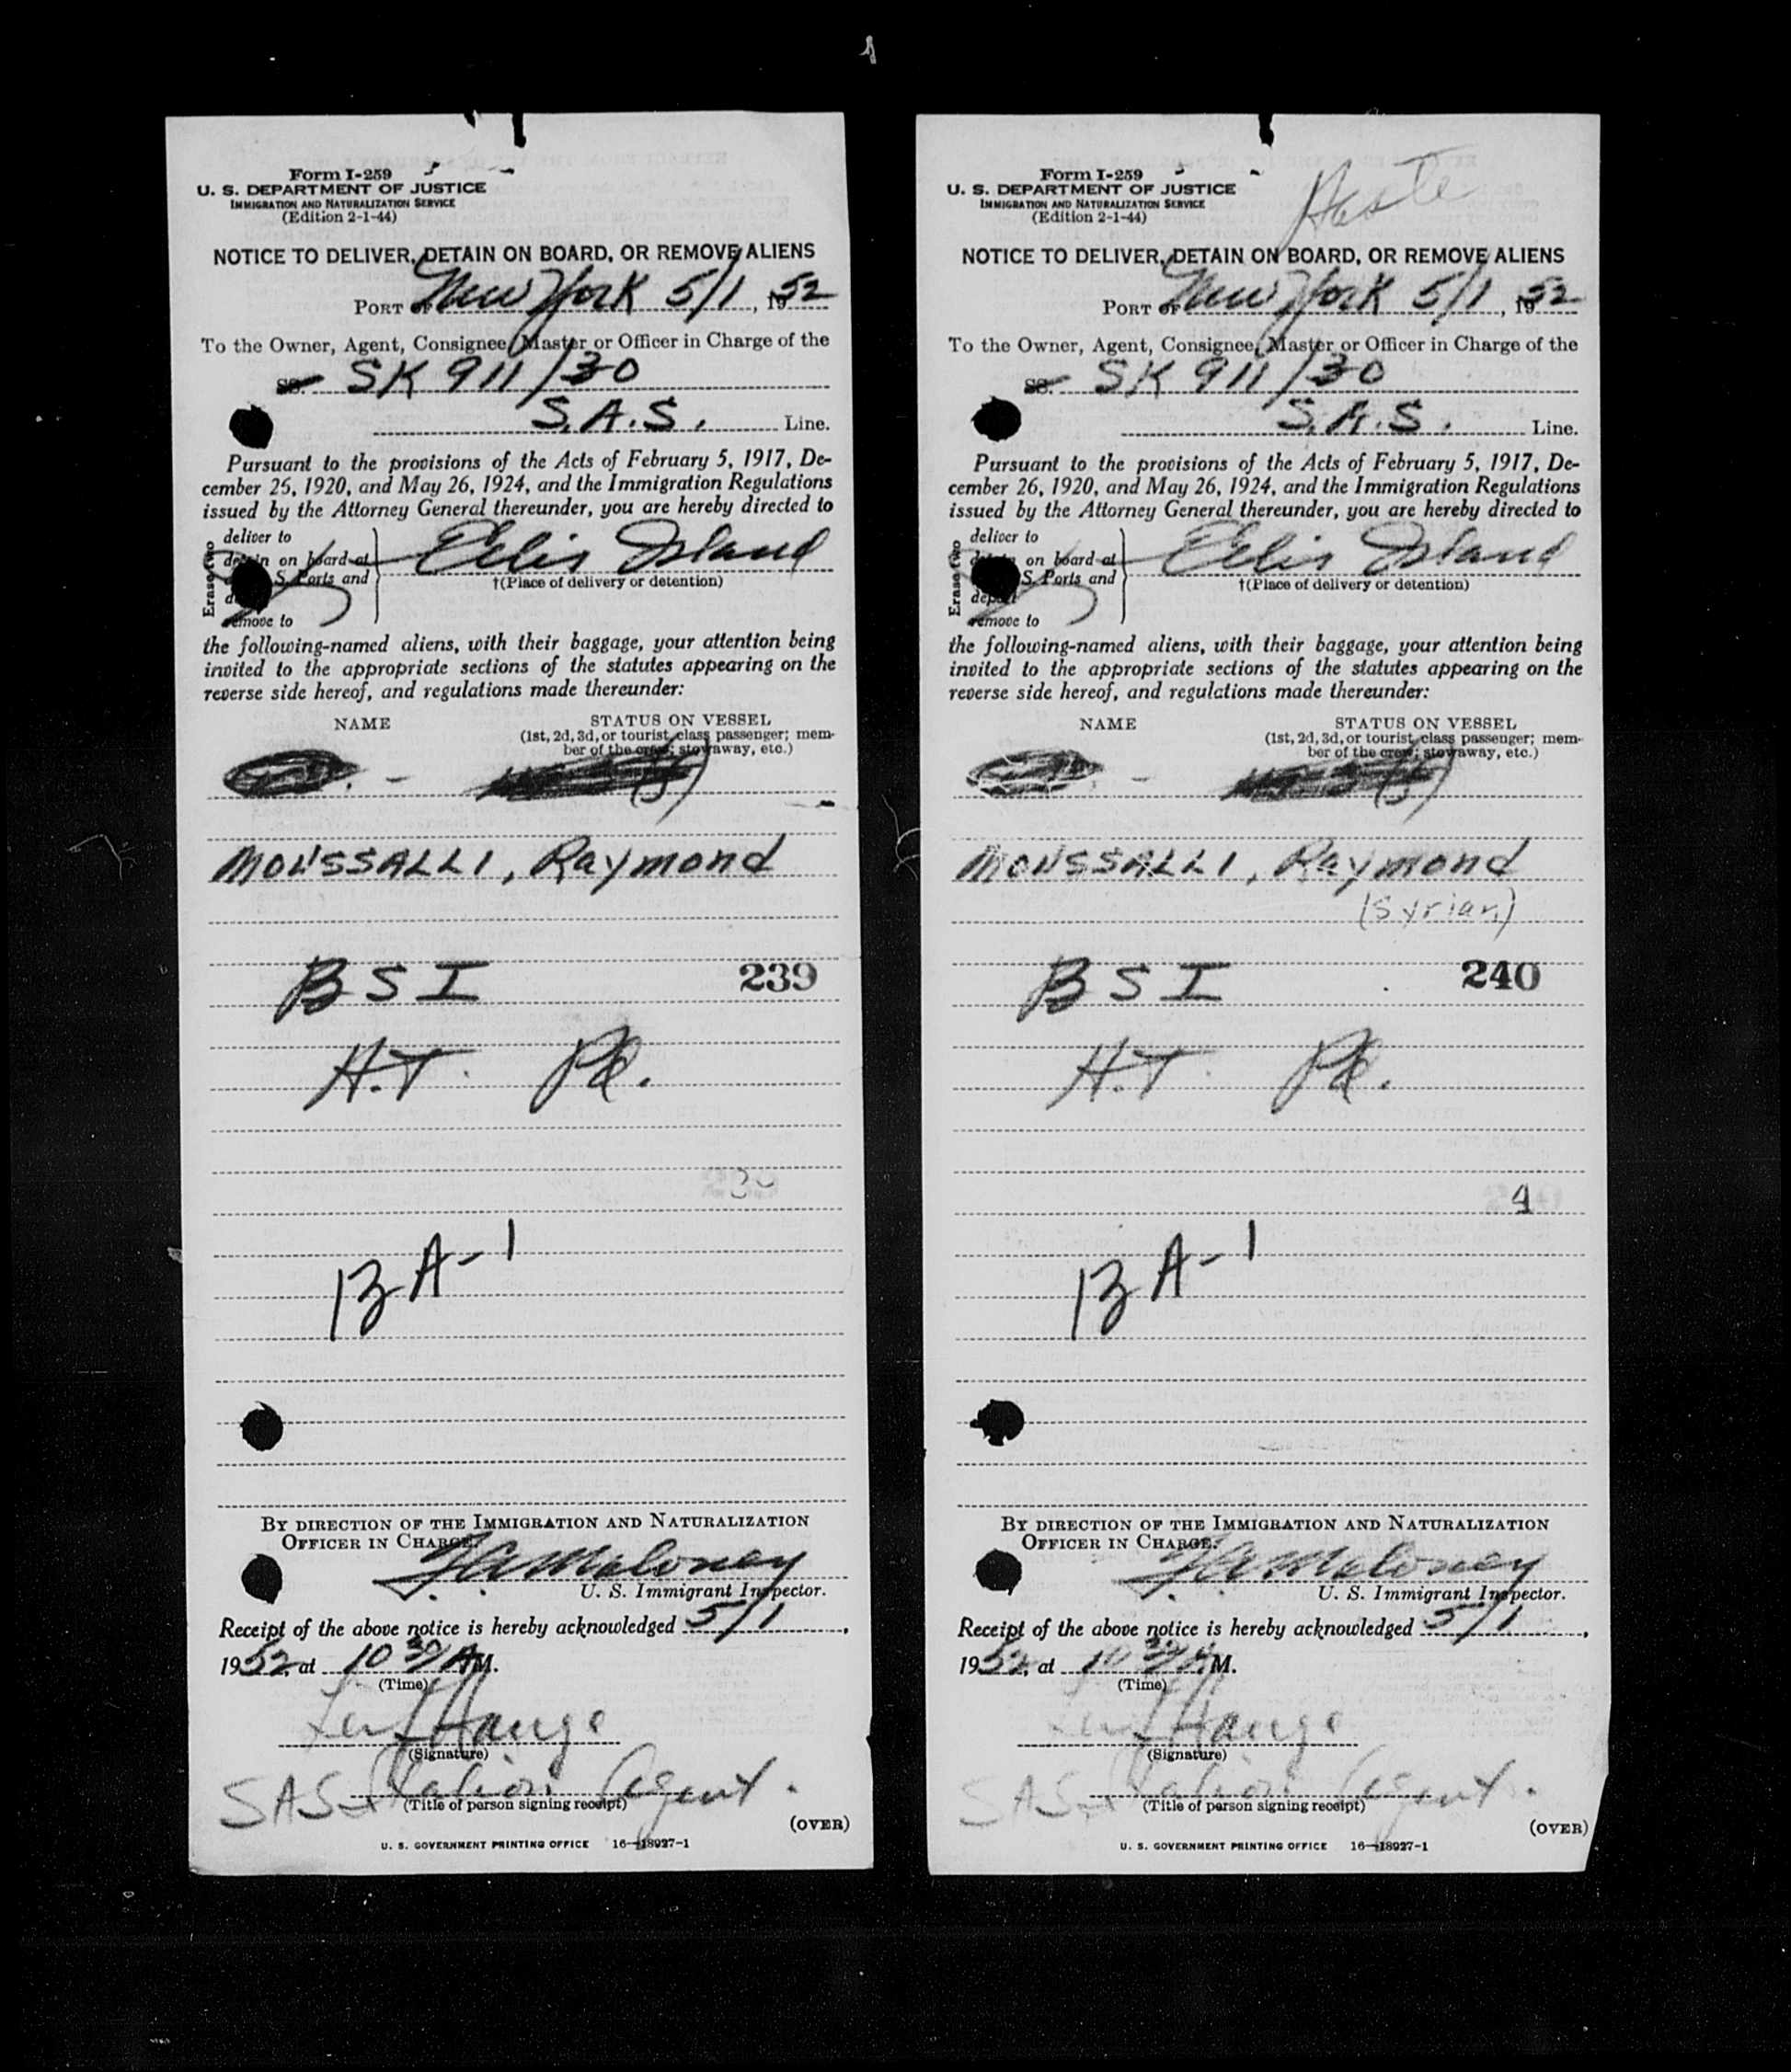 Form I-259
U. S. DEPARTMENT OF JUSTICE
IMMIGRATION AND NATURALIZATION SERVICE
(Edition 2-1-44)
NOTICE TO DELIVER, DETAIN ON BOARD, OR REMOVE ALIENS
PORT OF New York 5/1, 1952
To the Owner, Agent, Consignee, Master or Officer in Charge of the
SS. SK 911/30
S.A.S. Line.
Pursuant to the provisions of the Acts of February 5, 1917, De-
cember 26, 1920, and May 26, 1924, and the Immigration Regulations
issued by the Attorney General thereunder, you are hereby directed to
Erase two
deliver to
on board at
S. Ports and
remove to
Ellis Island
†(Place of delivery or detention)
the following-named aliens, with their baggage, your attention being
invited to the appropriate sections of the statutes appearing on the
reverse side hereof, and regulations made thereunder:
NAME STATUS ON VESSEL
(1st, 2d, 3d, or tourist class passenger; mem-
ber of the crew; stowaway, etc.)
MOUSSALLI, Raymond
BSI 239
H.T.
A-1
BY DIRECTION OF THE IMMIGRATION AND NATURALIZATION
OFFICER IN CHARGE.
Maloney
U. S. Immigrant Inspector.
Receipt of the above notice is hereby acknowledged 5/1,
1952, at 10 30 AM.
(Time)
Hauge
(Signature)
SAS Station Agent.
(Title of person signing receipt)
(OVER)
U. S. GOVERNMENT PRINTING OFFICE 16—18927-1
Form I-259
U. S. DEPARTMENT OF JUSTICE
IMMIGRATION AND NATURALIZATION SERVICE
(Edition 2-1-44)
NOTICE TO DELIVER, DETAIN ON BOARD, OR REMOVE ALIENS
PORT OF New York 5/1, 1952
To the Owner, Agent, Consignee, Master or Officer in Charge of the
SS. SK 911/30
S.A.S. Line.
Pursuant to the provisions of the Acts of February 5, 1917, De-
cember 26, 1920, and May 26, 1924, and the Immigration Regulations
issued by the Attorney General thereunder, you are hereby directed to
Erase two
deliver to
on board at
S. Ports and
depart
remove to
Ellis Island
†(Place of delivery or detention)
the following-named aliens, with their baggage, your attention being
invited to the appropriate sections of the statutes appearing on the
reverse side hereof, and regulations made thereunder:
NAME STATUS ON VESSEL
(1st, 2d, 3d, or tourist class passenger; mem-
ber of the crew; stowaway, etc.)
MOUSSALLI, Raymond
(Syrian)
BSI 240
H.T.
4
A-1
BY DIRECTION OF THE IMMIGRATION AND NATURALIZATION
OFFICER IN CHARGE.
Maloney
U. S. Immigrant Inspector.
Receipt of the above notice is hereby acknowledged 5/1,
1952, at 10 30 AM.
(Time)
Hauge
(Signature)
SAS Station Agent.
(Title of person signing receipt)
(OVER)
U. S. GOVERNMENT PRINTING OFFICE 16—18927-1